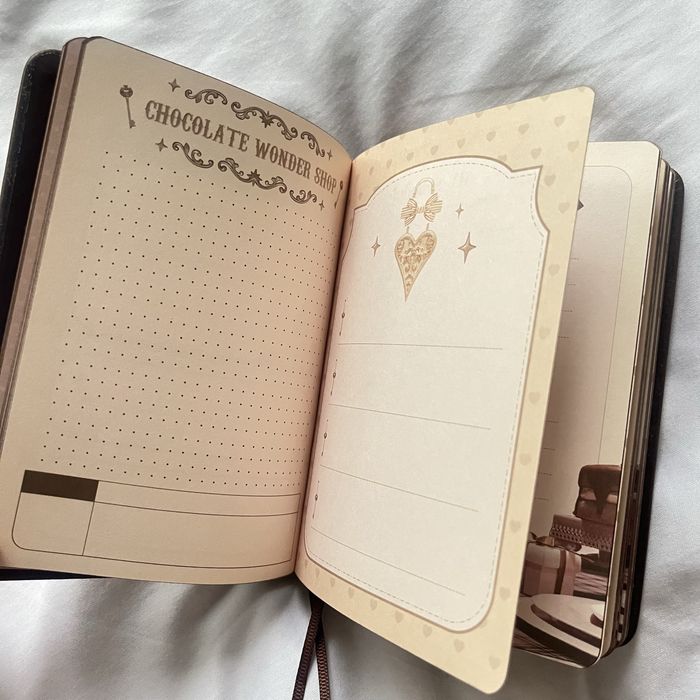 CHOCOLATE WONDER SHOP